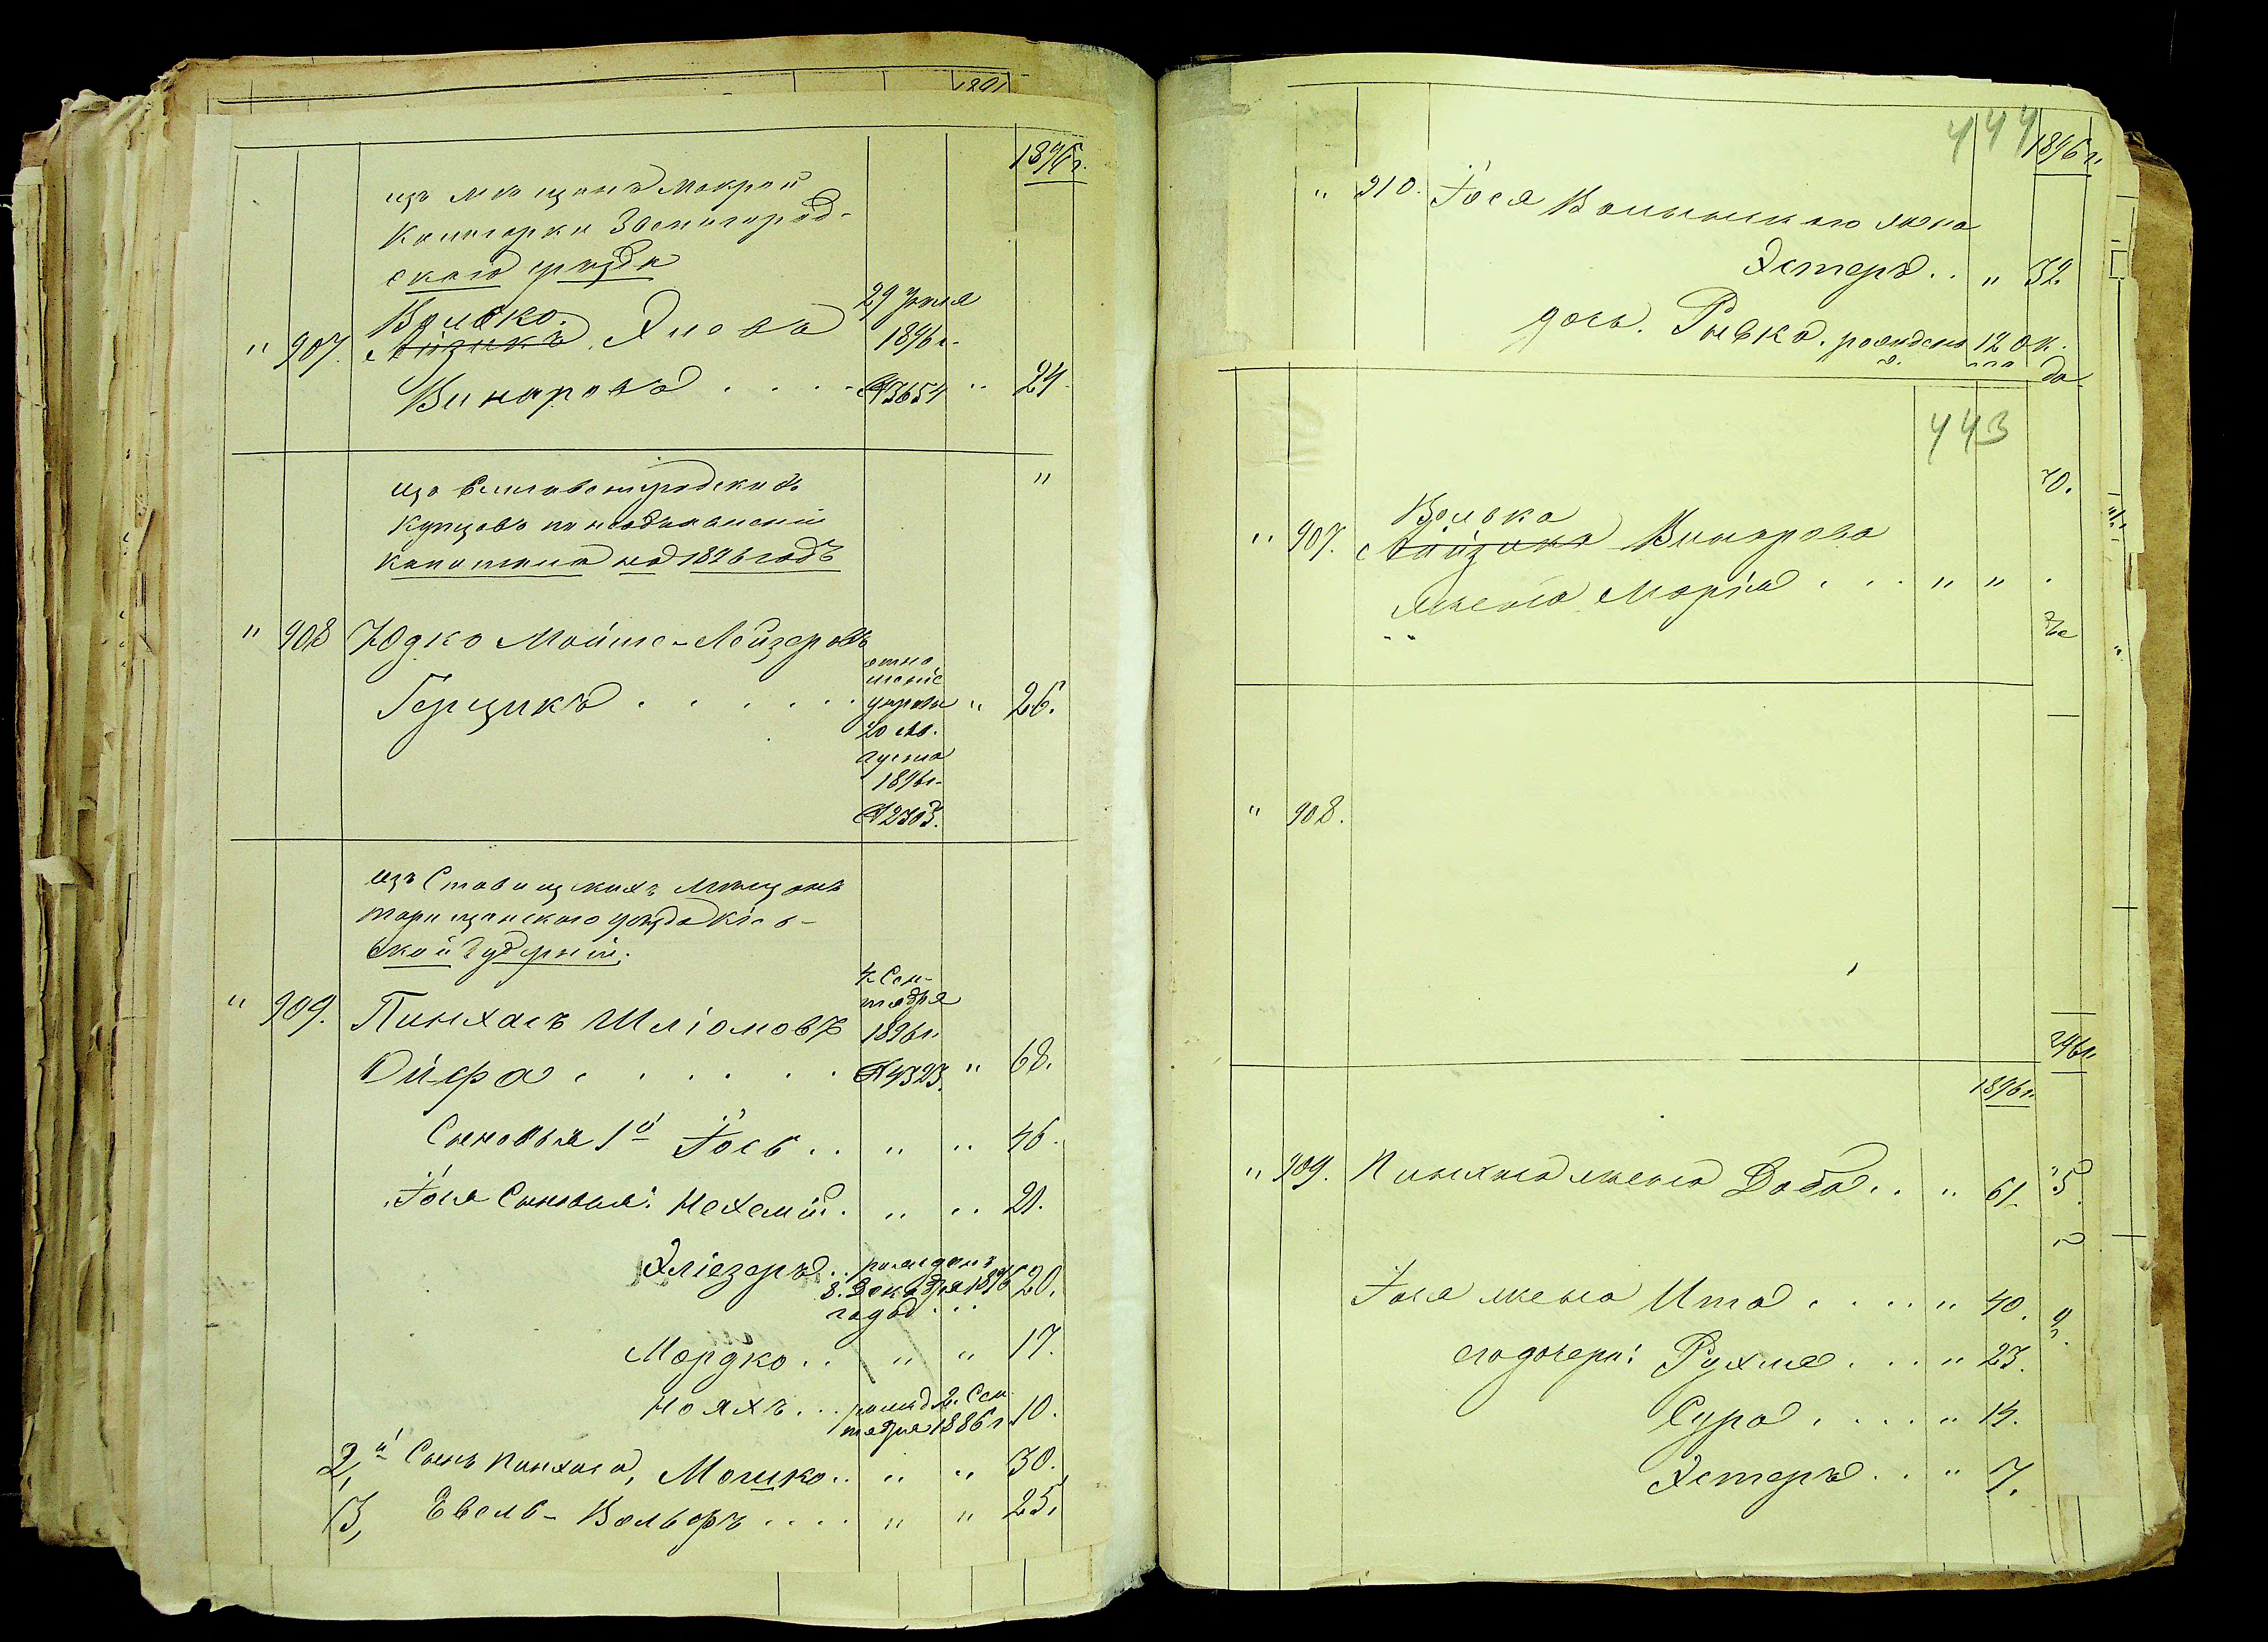 1891
1896 г.
изъ мѣщанъ Мокрой
Калигорки Звенигород-
скаго уѣзда
" 907. Волько
Айзикъ Элевъ
Винаровъ . . . .
29 Іюля
1896 г.
№ 3654 " 24
изъ Елисаветградскихъ "
купцовъ по необъявленію
капитала на 1896 годъ
" 908 Юдко Мойше-Лейзеровъ
Герцикъ . . . . . .
отно
шеніе
управы " 26.
20 Ав.
густа
1896 г.
№ 2303.
изъ Ставищкихъ мѣщанъ
таращанскаго уѣзда Кіев-
ской Губерніи.
" 909. Пинхасъ Шліомовъ
Ойфа . . . . . .
4 Сен-
тября
1896 г.
№ 4323. " 68.
Сыновья 1й Іось . . " " 46.
Іося Сыновья: Нехемій . " " 21.
Эліезеръ . . рожденъ 20.
8. Декабря 1876
года . . .
Мордко . . " " 17.
Нояхъ . . . рожд 2. Сен 10.
тября 1886 г.
2,й Сынъ Пинхаса, Мошко . . " " 30.
3, Евель-Вольфъ . . . . " " 25.
444
1896 г.
" 910. Іося Волынскаго жена
Эстеръ . . " 32.
дочь. Рывка. рожден 12 Ок.
443
" 907. Волька
Айзика Винарова
жена Марія . . . " "
" 908.
1896 г.
" 909. Пинхаса жена Доба . . " 61.
Іося жена Ита . . . . " 40.
его дочери: Рухля . . . " 23.
Сура . . . . " 14.
Эстеръ . . " 7.